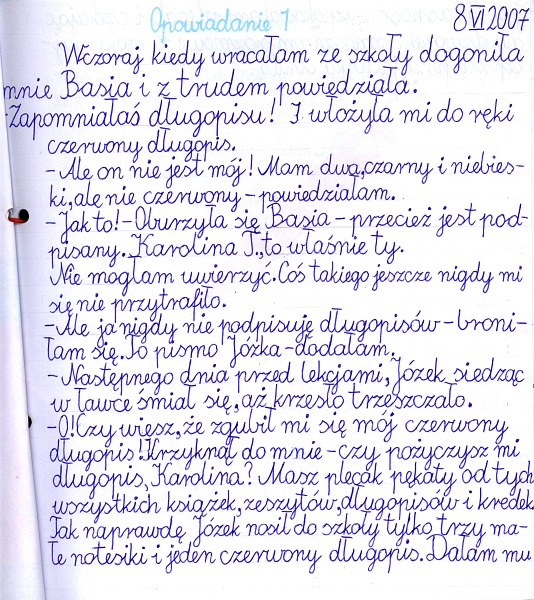 Opowiadanie 1 8 VI 2007
Wczoraj kiedy wracałam ze szkoły dogoniła
mnie Basia i z trudem powiedziała.
-Zapomniałaś długopisu! I włożyła mi do ręki
czerwony długopis.
-Ale on nie jest mój! Mam dwa, czarny i niebies-
ki, ale nie czerwony - powiedziałam.
-Jak to! - Oburzyła się Basia - przecież jest pod-
pisany. Karolina J., to właśnie ty.
Nie mogłam uwierzyć. Coś takiego jeszcze nigdy mi
się nie przytrafiło.
-Ale ja nigdy nie podpisuję długopisów - broni-
łam się. To pismo Józka - dodałam.
-Następnego dnia przed lekcjami, Józek siedząc
w ławce śmiał się, aż krzesło trzeszczało.
-O! Czy wiesz, że zgubił mi się mój czerwony
długopis! Krzyknął do mnie - czy pożyczysz mi
długopis, Karolina? Masz plecak pękaty od tych
wszystkich książek, zeszytów, długopisów i kredek.
Tak naprawdę Józek nosił do szkoły tylko trzy ma-
łe notesiki i jeden czerwony długopis. Dałam mu